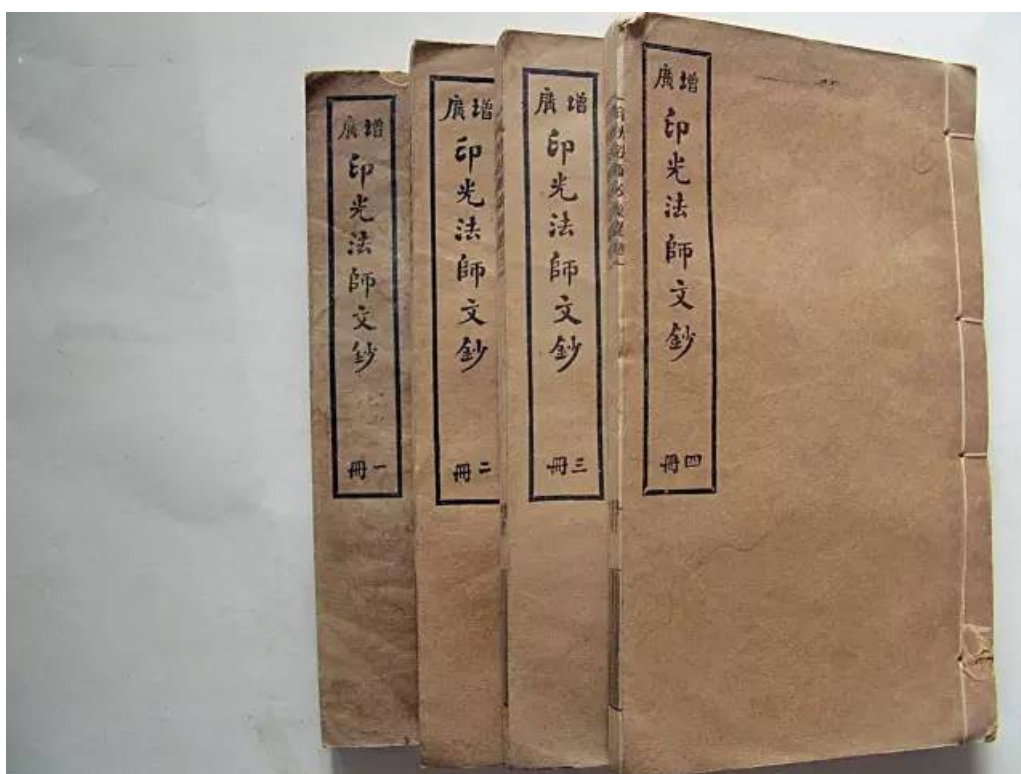 增廣
印光法師文鈔
一冊
增廣
印光法師文鈔
二冊
增廣
印光法師文鈔
三冊
增廣
印光法師文鈔
四冊